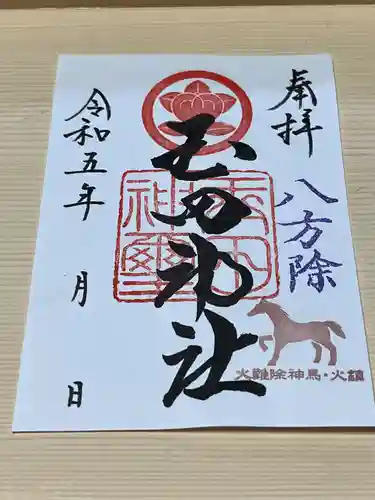 奉拝
八方除
火難除神馬・火鎮
玉田神社
玉田神社璽
令和五年
月
日